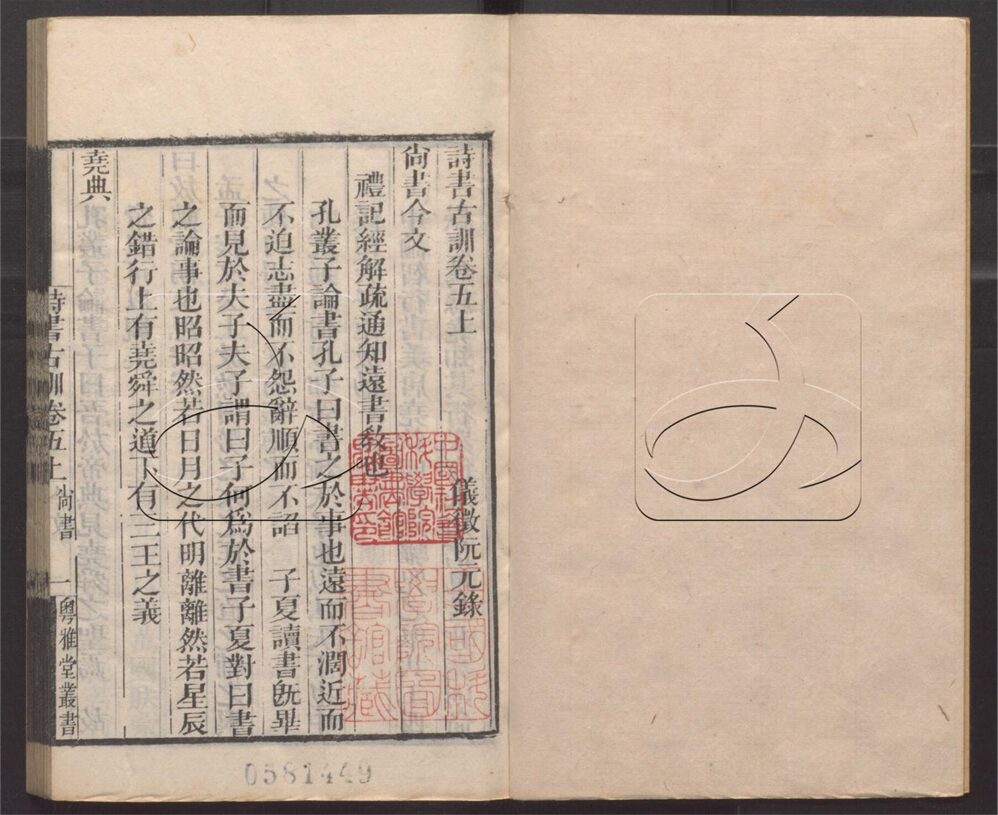 詩書古訓卷五上
儀徵阮元錄
尙書今文
禮記經解疏通知遠書敎也
孔叢子論書孔子曰書之於事也遠而不濶近而
不迫志盡而不怨辭順而不諂　子夏讀書旣畢
而見於夫子夫子謂曰子何爲於書子夏對曰書
之論事也昭昭然若日月之代明離離然若星辰
之錯行上有堯舜之道下有三王之義
堯典
詩書古訓卷五上 尙書 一 粵雅堂叢書
0581449